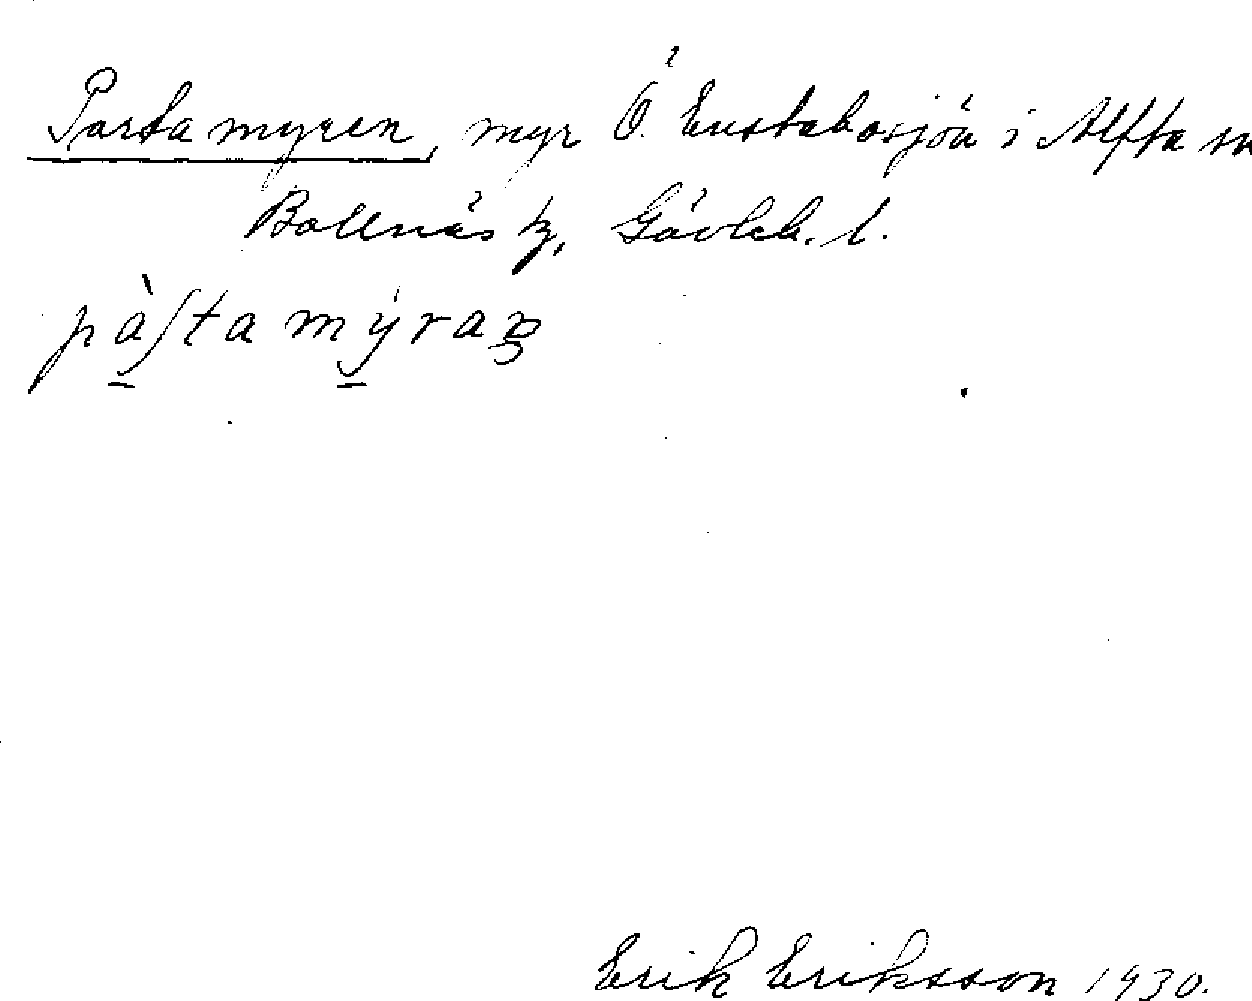 Partamyren, myr Ö. Enstabosjön i Alfta sn
Bollnäs tg, Gävleb. l.
pàʃtamýraŋ
Erik Eriksson 1930.